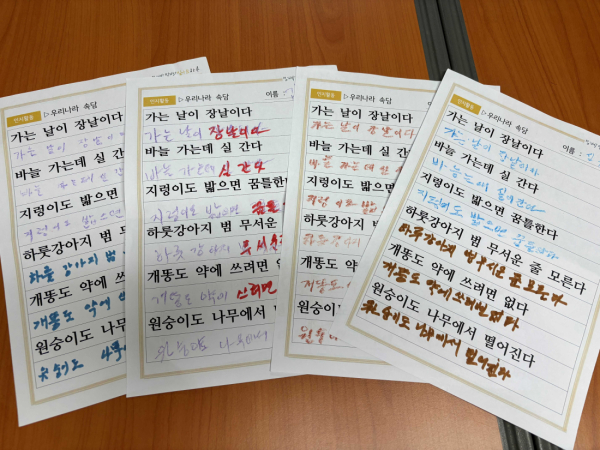 인지활동 ▷우리나라 속담
가는 날이 장날이다
바늘 가는데 실
지렁이도 밟으면
하룻강아지 범
개똥도 약에
원숭이도
하룻강아지 범
개똥도 약에
인지활동 ▷우리나라 속담 이름 :
가는 날이 장날이다
가는 날이 장날이다
바늘 가는데 실 간다
바늘 가는데 실 간다
지렁이도 밟으면 꿈틀
지렁이도 밟으면 꿈틀
하룻강아지 범 무서운
하룻강아지 무서운
개똥도 약에 쓰려면
개똥도 약에 쓰려면
원숭이도 나무에서
인지활동 ▷우리나라 속담
가는 날이 장날이다
가는 날이 장날이다
바늘 가는데 실 간
바늘 가는데 실
지렁이도 밟으면
지렁이도 밟
하룻강아지 범
개똥도 약에
원숭이도 나
인지활동 ▷우리나라 속담 이름 :
가는 날이 장날이다
가는 날이 장날이다
바늘 가는데 실 간다
지렁이도 밟으면 꿈틀한다
지렁이도 밟으면 꿈틀한다
하룻강아지 범 무서운 줄 모른다
하룻강아지 범 무서운 줄 모른다
개똥도 약에 쓰려면 없다
개똥도 약에 쓰려면 없다
원숭이도 나무에서 떨어진다
원숭이도 나무에서 떨어진다